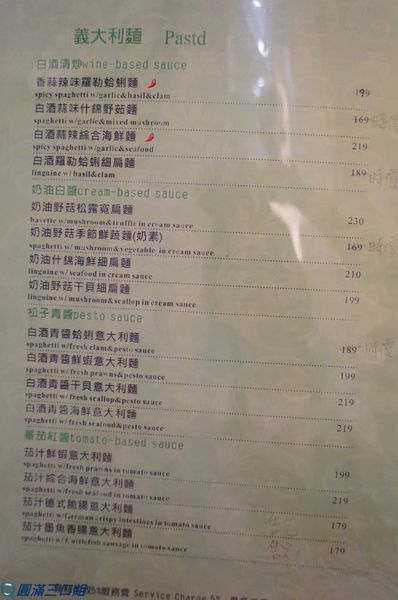 義大利麵 Pastd
白酒清炒wine-based sauce
香蒜辣味羅勒蛤蜊麵
spicy spaghetti w/garlic&basil&clam 199
白酒蒜味什錦野菇麵
spaghetti w/garlic&mixed mushroom 169 時價
白酒蒜辣綜合海鮮麵
spicy spaghetti w/garlic&seafood 219
白酒羅勒蛤蜊細扁麵
linguine w/basil&clam 189 時價
奶油白醬cream-based sauce
奶油野菇松露寬扁麵
bavette w/mushroom&truffle in cream sauce 230
奶油野菇季節鮮蔬麵(奶素)
spaghetti w/mushroom&vegetable in cream sauce 169 時價
奶油什錦海鮮細扁麵
linguine w/seafood in cream sauce 210
奶油野菇干貝細扁麵
linguine w/mushroom&scallop in cream sauce 199
松子青醬pesto sauce
白酒青醬蛤蜊意大利麵
spaghetti w/fresh clam&pesto sauce 189 時價
白酒青醬鮮蝦意大利麵
spaghetti w/fresh prawns&pesto sauce 199
白酒青醬干貝意大利麵
spaghetti w/fresh scallop&pesto sauce 219
白酒青醬海鮮意大利麵
spaghetti w/fresh seafood&pesto sauce 219
蕃茄紅醬tomato-based sauce
茄汁鮮蝦意大利麵
spaghetti w/fresh prawns in tomato sauce 199
茄汁綜合海鮮意大利麵
spaghetti w/fresh seafood in tomato sauce 219
茄汁德式脆腸意大利麵
spaghetti w/German crispy intestines in tomato sauce 179
茄汁墨魚香腸意大利麵
spaghetti w/Cuttlefish sausage in tomato sauce 179
5%服務費 Service Charge 5%
圓滿三四姐